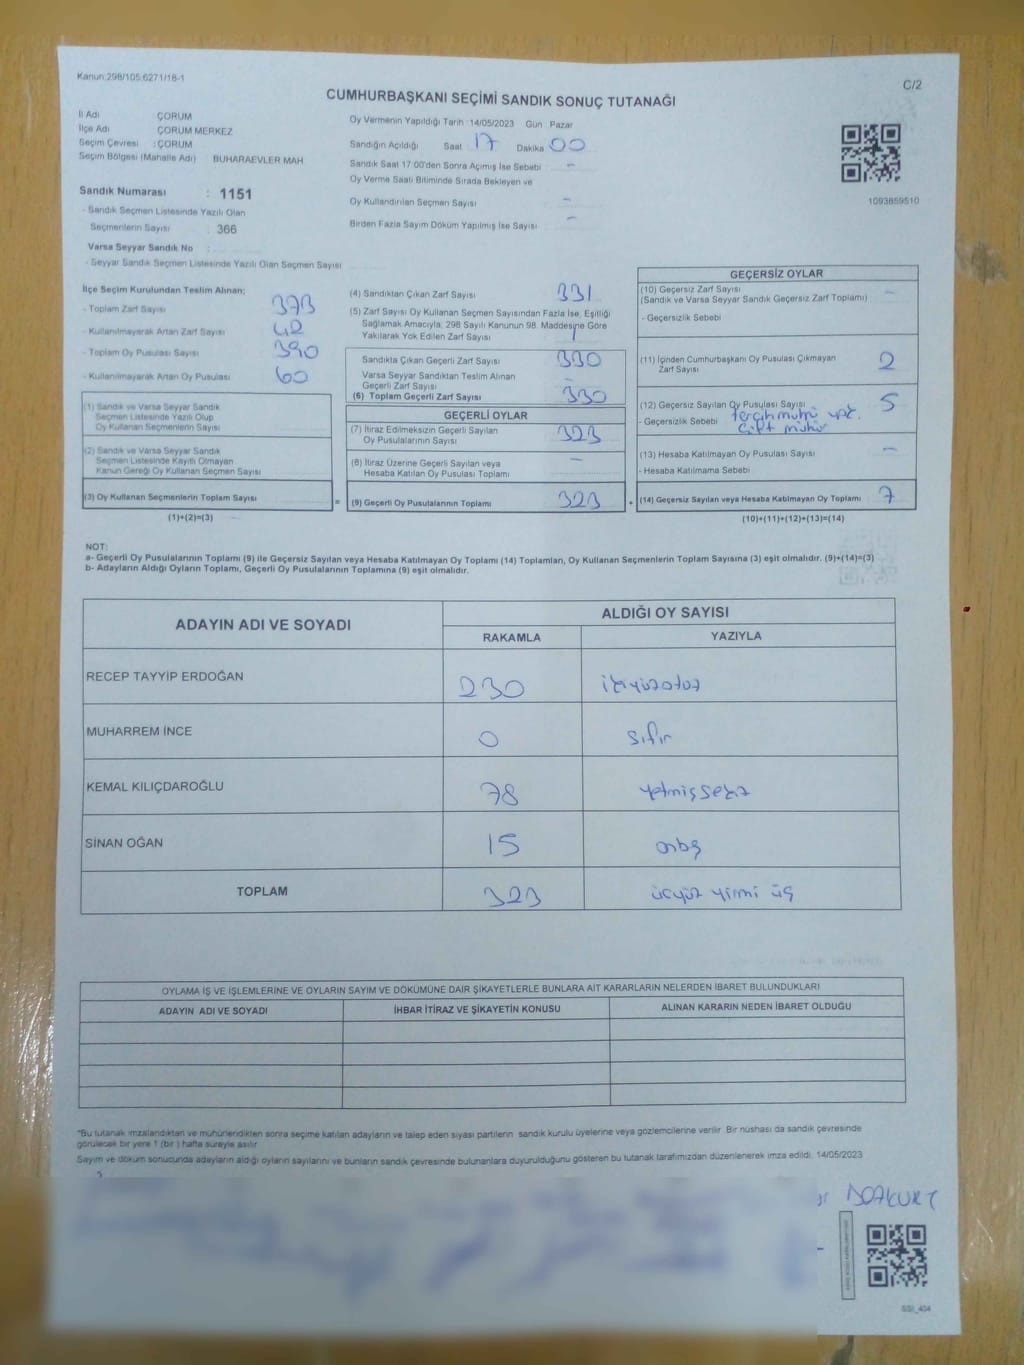 Kanun:298/105;6271/18-1
C/2
CUMHURBAŞKANI SEÇİMİ SANDIK SONUÇ TUTANAĞI
İl Adı ÇORUM
İlçe Adı ÇORUM MERKEZ
Seçim Çevresi :ÇORUM
Seçim Bölgesi (Mahalle Adı) BUHARAEVLER MAH
Oy Vermenin Yapıldığı Tarih 14/05/2023 Gün Pazar
Sandığın Açıldığı Saat 17 Dakika 00
Sandık Saat 17:00'den Sonra Açılmış İse Sebebi -
Oy Verme Saati Bitiminde Sırada Bekleyen ve
Oy Kullandırılan Seçmen Sayısı -
Birden Fazla Sayım Döküm Yapılmış İse Sayısı -
1093859510
Sandık Numarası : 1151
- Sandık Seçmen Listesinde Yazılı Olan
Seçmenlerin Sayısı : 366
Varsa Seyyar Sandık No :
- Seyyar Sandık Seçmen Listesinde Yazılı Olan Seçmen Sayısı
İlçe Seçim Kurulundan Teslim Alınan;
- Toplam Zarf Sayısı 373
- Kullanılmayarak Artan Zarf Sayısı 42
- Toplam Oy Pusulası Sayısı 390
- Kullanılmayarak Artan Oy Pusulası 60
(1) Sandık ve Varsa Seyyar Sandık
Seçmen Listesinde Yazılı Olup
Oy Kullanan Seçmenlerin Sayısı
(2) Sandık ve Varsa Seyyar Sandık
Seçmen Listesinde Kayıtlı Olmayan
Kanun Gereği Oy Kullanan Seçmen Sayısı
(3) Oy Kullanan Seçmenlerin Toplam Sayısı
(1)+(2)=(3)
=
(4) Sandıktan Çıkan Zarf Sayısı 331
(5) Zarf Sayısı Oy Kullanan Seçmen Sayısından Fazla İse, Eşitliği
Sağlamak Amacıyla; 298 Sayılı Kanunun 98. Maddesine Göre
Yakılarak Yok Edilen Zarf Sayısı 1
Sandıkta Çıkan Geçerli Zarf Sayısı 330
Varsa Seyyar Sandıktan Teslim Alınan
Geçerli Zarf Sayısı -
(6) Toplam Geçerli Zarf Sayısı 330
GEÇERLİ OYLAR
(7) İtiraz Edilmeksizin Geçerli Sayılan
Oy Pusulalarının Sayısı 323
(8) İtiraz Üzerine Geçerli Sayılan veya
Hesaba Katılan Oy Pusulası Toplamı -
(9) Geçerli Oy Pusulalarının Toplamı 323
+
GEÇERSİZ OYLAR
(10) Geçersiz Zarf Sayısı -
(Sandık ve Varsa Seyyar Sandık Geçersiz Zarf Toplamı)
- Geçersizlik Sebebi
(11) İçinden Cumhurbaşkanı Oy Pusulası Çıkmayan
Zarf Sayısı 2
(12) Geçersiz Sayılan Oy Pusulası Sayısı 5
- Geçersizlik Sebebi tercih mührü yok.
Çift mühür
(13) Hesaba Katılmayan Oy Pusulası Sayısı -
- Hesaba Katılmama Sebebi
(14) Geçersiz Sayılan veya Hesaba Katılmayan Oy Toplamı 7
(10)+(11)+(12)+(13)=(14)
NOT:
a- Geçerli Oy Pusulalarının Toplamı (9) ile Geçersiz Sayılan veya Hesaba Katılmayan Oy Toplamı (14) Toplamları, Oy Kullanan Seçmenlerin Toplam Sayısına (3) eşit olmalıdır. (9)+(14)=(3)
b- Adayların Aldığı Oyların Toplamı, Geçerli Oy Pusulalarının Toplamına (9) eşit olmalıdır.
ADAYIN ADI VE SOYADI
ALDIĞI OY SAYISI
RAKAMLA YAZIYLA
RECEP TAYYİP ERDOĞAN 230 ikiyüzotuz
MUHARREM İNCE 0 sıfır
KEMAL KILIÇDAROĞLU 78 yetmişsekiz
SİNAN OĞAN 15 onbş
TOPLAM 323 üçyüz yirmi üç
OYLAMA İŞ VE İŞLEMLERİNE VE OYLARIN SAYIM VE DÖKÜMÜNE DAİR ŞİKAYETLERLE BUNLARA AİT KARARLARIN NELERDEN İBARET BULUNDUKLARI
ADAYIN ADI VE SOYADI İHBAR İTİRAZ VE ŞİKAYETİN KONUSU ALINAN KARARIN NEDEN İBARET OLDUĞU
*Bu tutanak imzalandıktan ve mühürlendikten sonra seçime katılan adayların ve talep eden siyasi partilerin sandık kurulu üyelerine veya gözlemcilerine verilir. Bir nüshası da sandık çevresinde
görülecek bir yere 1 (bir ) hafta süreyle asılır.
Sayım ve döküm sonucunda adayların aldığı oyların sayılarını ve bunların sandık çevresinde bulunanlara duyurulduğunu gösteren bu tutanak tarafımızdan düzenlenerek imza edildi. 14/05/2023
BOZKURT